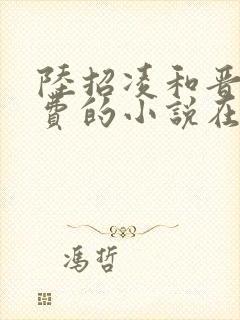 陸招凌和晋
費的小說在
馮哲